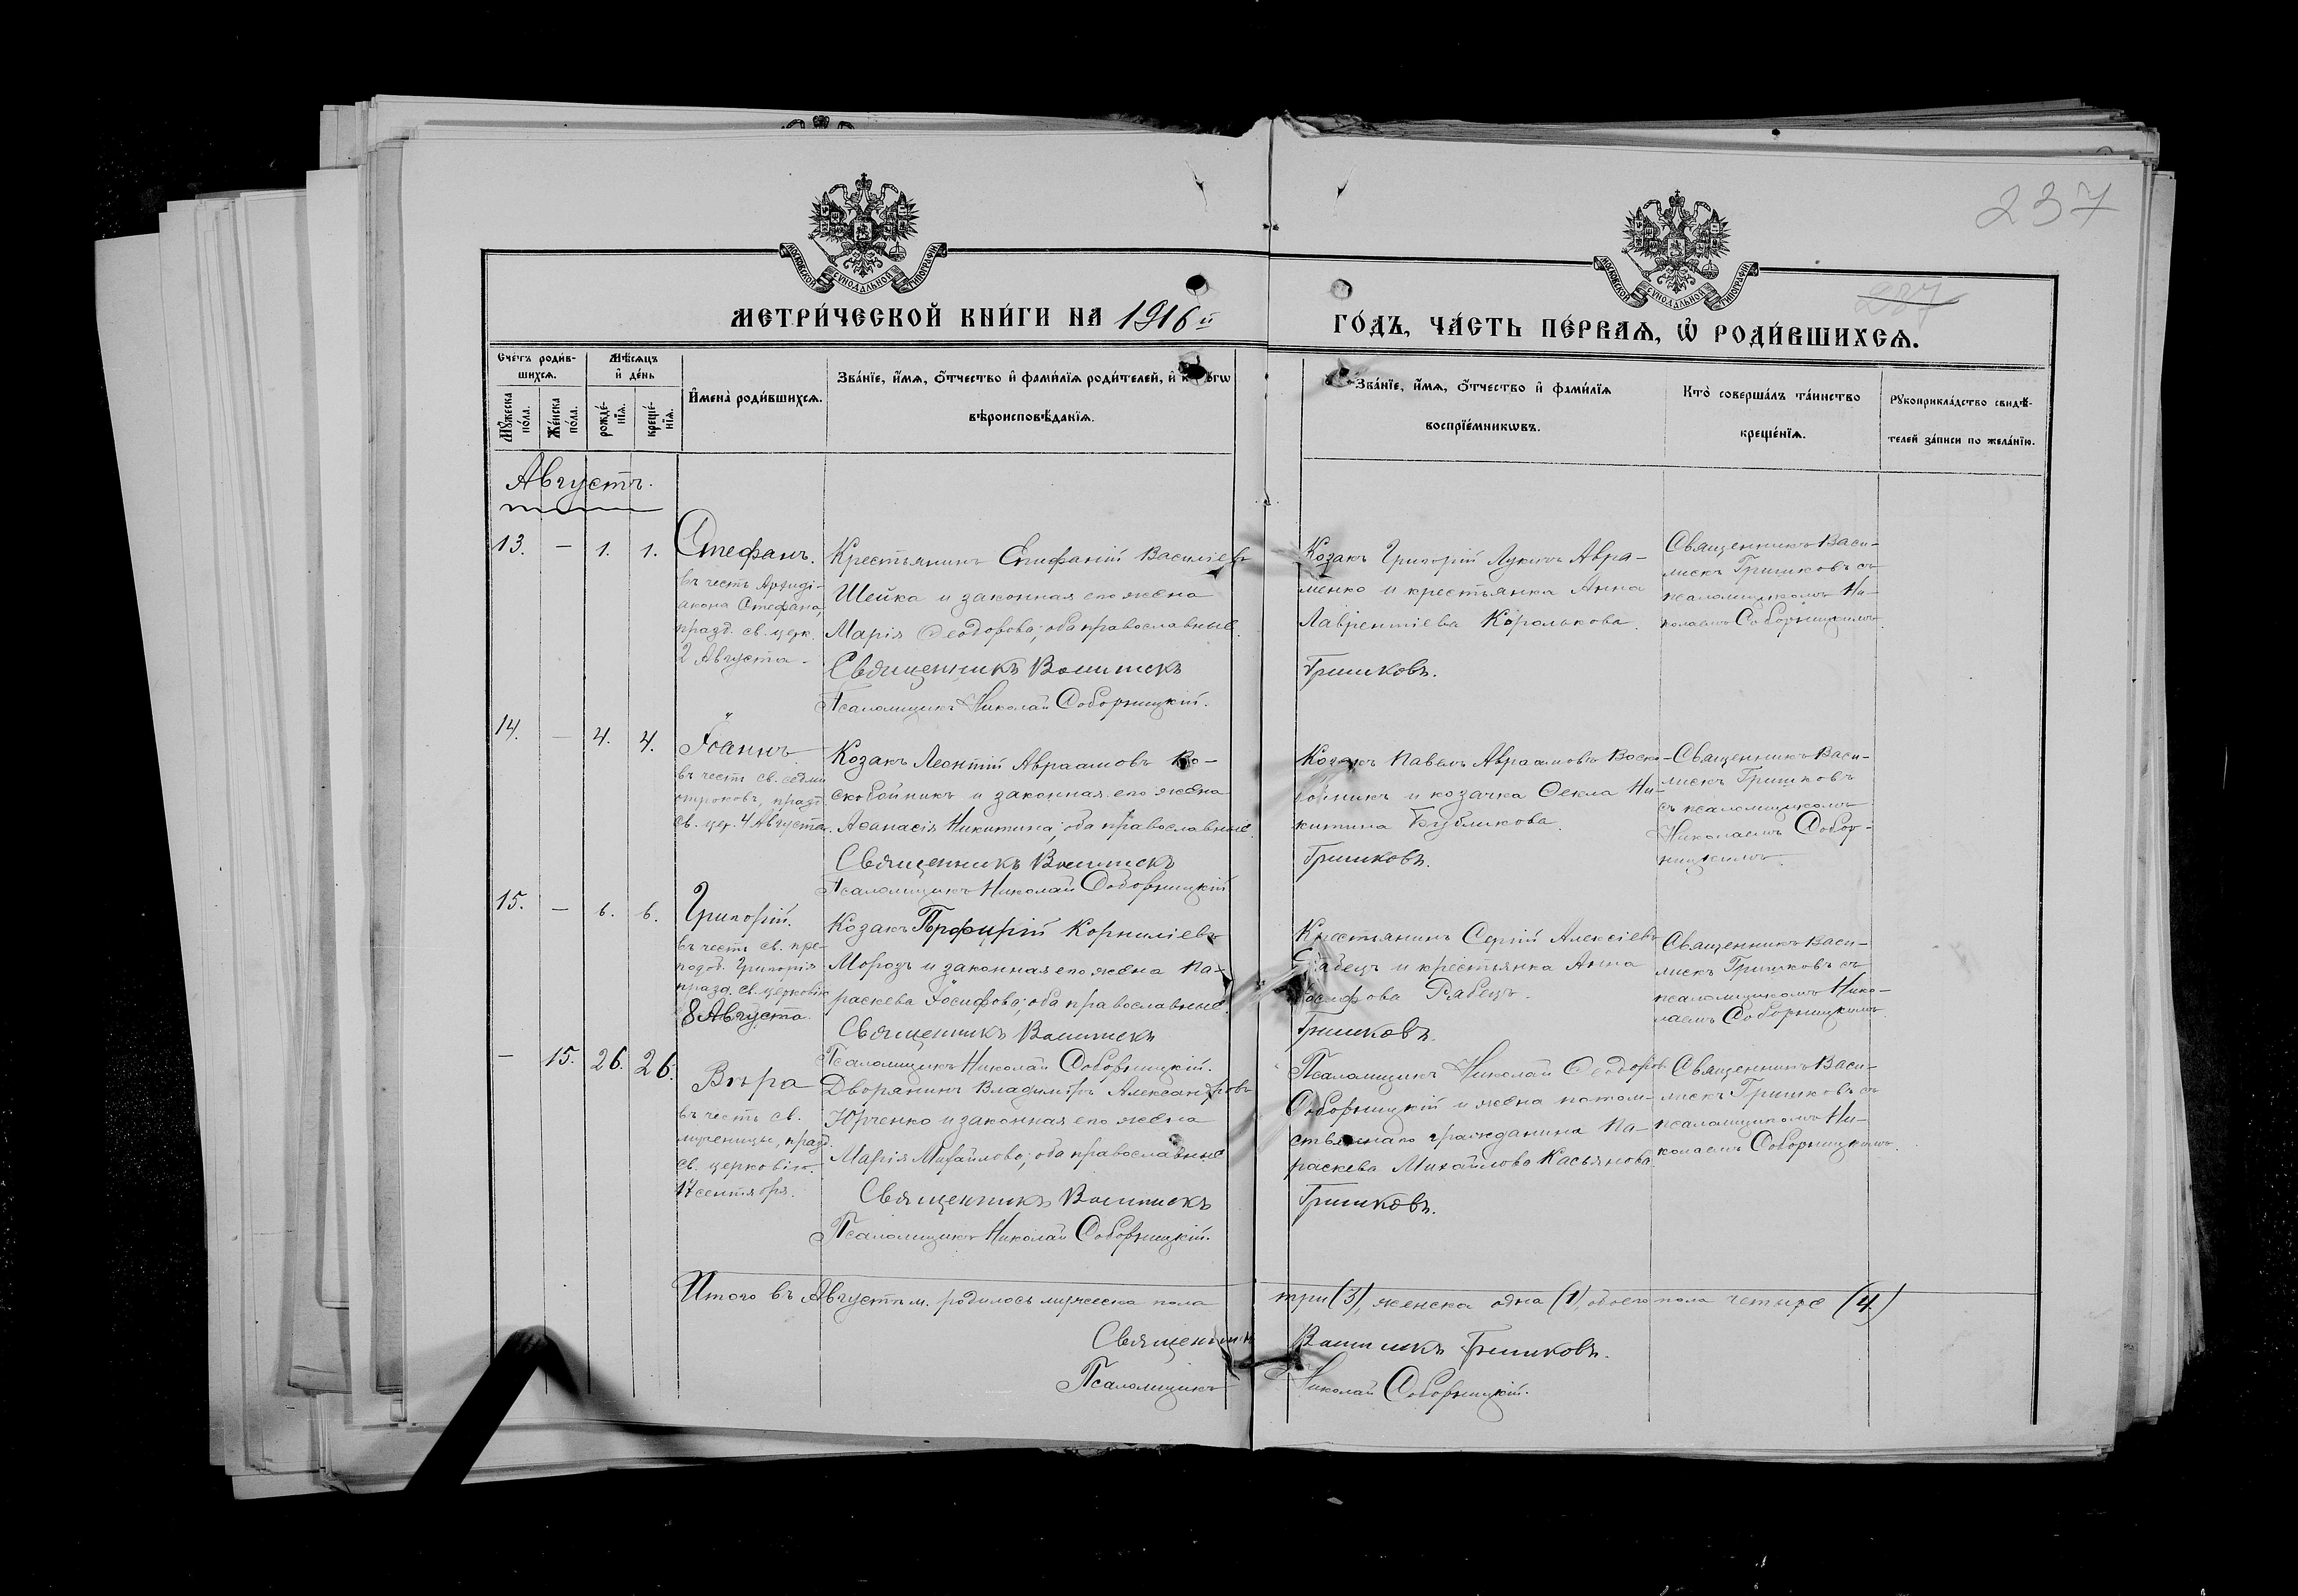 237
МОСКОВСКОЙ СѴНОДАЛЬНОЙ ТИПОГРАФІИ
МОСКОВСКОЙ СѴНОДАЛЬНОЙ ТИПОГРАФІИ
237
МЕТРИ́ЧЕСКОЙ КНИ́ГИ НА 1916 й
ГО́ДЪ, ЧА́СТЬ ПЕ́РВАЯ, Ѽ РОДИ́ВШИХСЯ.
Сче́тъ роди́в-
шихся.
Мѣ́сяцъ
и҆ де́нь
Му́жеска
по́ла.
Же́нска
по́ла.
рожде́-
нїя.
креще́-
нїя.
И҆мена̀ роди́вшихся.
Зва́нїе, и҆́мя, ѻ҆́тчество и҆ фами́лїя роди́телей, и҆
вѣроисповѣ́данїя.
Зва́нїе, и҆́мя, ѻ҆́тчество и҆ фами́лїя
воспрїе́мникωвъ.
Кто̀ соверша́лъ та́инство
креще́нїя.
Рꙋкоприкла́дство свидѣ́-
телей за́писи по жела́нїю.
Августъ.
13. — 1. 1.
Стефанъ.
въ честь Архиді-
акона Стефана,
празд. св. церк.
2 Августа.
Крестьянинъ Епифаній Василіевъ
Шейка и законная его жена
Марія Ѳеодорова; оба православные.
Священникъ Василискъ
Псаломщикъ Николай Соборницкій.
Козакъ Григорій Лукичъ Авра-
менко и крестьянка Анна
Лаврентіева Королькова.
Гришковъ.
Священникъ Васи-
лискъ Гришковъ съ
псаломщикомъ Ни-
колаемъ Соборницкимъ.
14. — 4. 4.
Іоаннъ
въ честь св. седми
отроковъ, празд.
св. цер. 4 Августа.
Козакъ Леонтій Авраамовъ Во-
скобойникъ и законная его жена
Аѳанасія Никитина; оба православные.
Священникъ Василискъ
Псаломщикъ Николай Соборницкій
Козакъ Павелъ Авраамовъ Воско-
бойникъ и козачка Ѳекла Ни-
китина Бубликова.
Гришковъ.
Священникъ Васи-
лискъ Гришковъ
съ псаломщикомъ
Николаемъ Собор-
ницкимъ.
15. — 6. 6.
Григорій.
въ честь св. пре-
подоб. Григорія
празд. св. церковію
8 Августа.
Козакъ Порфирій Корниліевъ
Морозъ и законная его жена Па-
раскева Іосифова; оба православные.
Священникъ Василискъ
Псаломщикъ Николай Соборницкій.
Крестьянинъ Сергій Алексіевъ
Рабецъ и крестьянка Анна
Іосифова Рабецъ.
Гришковъ.
Священникъ Васи-
лискъ Гришковъ съ
псаломщикомъ Нико-
лаемъ Соборницкимъ
— 15. 26. 26.
Вѣра
въ честь св.
мученицы, празд.
св. церковію
17 сентября.
Дворянинъ Владиміръ Александровъ
Юрченко и законная его жена
Марія Михайлова; оба православные
Священникъ Василискъ
Псаломщикъ Николай Соборницкій.
Псаломщикъ Николай Ѳеодоров.
Соборницкій и жена потом-
ственнаго гражданина Па-
раскева Михайлова Касьянова
Гришковъ.
Священникъ Васи-
лискъ Гришковъ съ
псаломщикомъ Ни-
колаемъ Соборницкимъ.
Итого въ Августѣ м. родилось мужеска пола три (3), женска одна (1), обоего пола четыре (4.)
Священникъ Василискъ Гришковъ.
Псаломщикъ Николай Соборницкій.